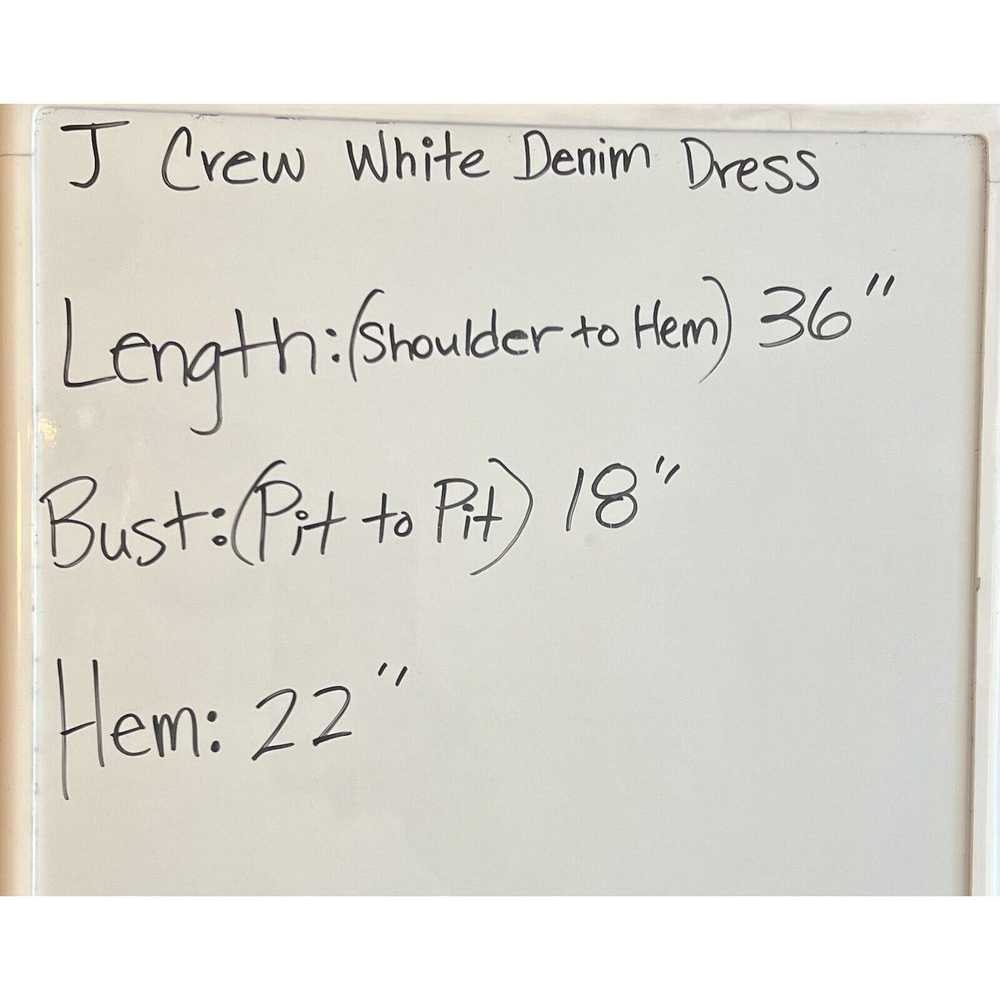 J Crew White Denim Dress
Length:(Shoulder to Hem) 36"
Bust:(Pit to Pit) 18"
Hem: 22"